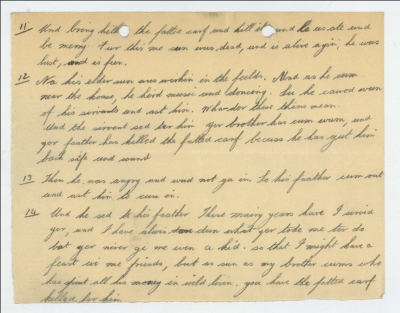 11 Und bring hether the fatted carf and kill it und le us ate und
be merry. Fur this me sun wus dead, und is alive agin, he wus
lost, und is fun.
12 Na his elder sun wus workin in the feelds. Und as he cum
near the house, he heird music und dancing. Su he cawed wun
of his servants and ast him. Whar dor these them mean.
Und the servant sed ter him yer brother has cum wum, und
yer faather has killed the fatted carf becuss he has got him
back safe und sound
13 Then he was angry and wud not go in. So his faather cum out
und ast him to cum in.
14 Und he sed to his faather These mainy years have I sarved
yer, and I have alwis dun what yer tode me ter do
but yer never ge me won a kid. so that I might have a
feast wi me friends, but as sun as my brother cums who
has spent all his money in wild livin. you have the fatted carf
killed for him